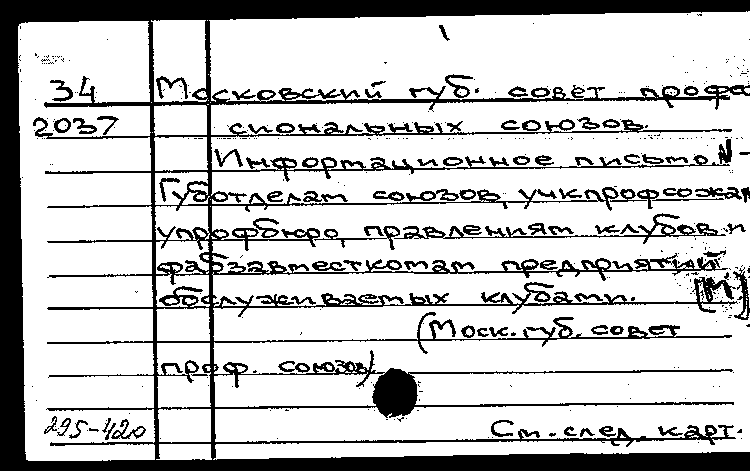 34 Московский губ. совет профес
2037 сиональных союзов.
Информационное письмо. N -
Губотделам союзов, учкпрофсожам
упрофбюро, правлениям клубов и
фабзавместкомам предприятий
обслуживаемых клубами. [М]
(Моск. губ. совет
проф. союзов)
295-420 См. след. карт.